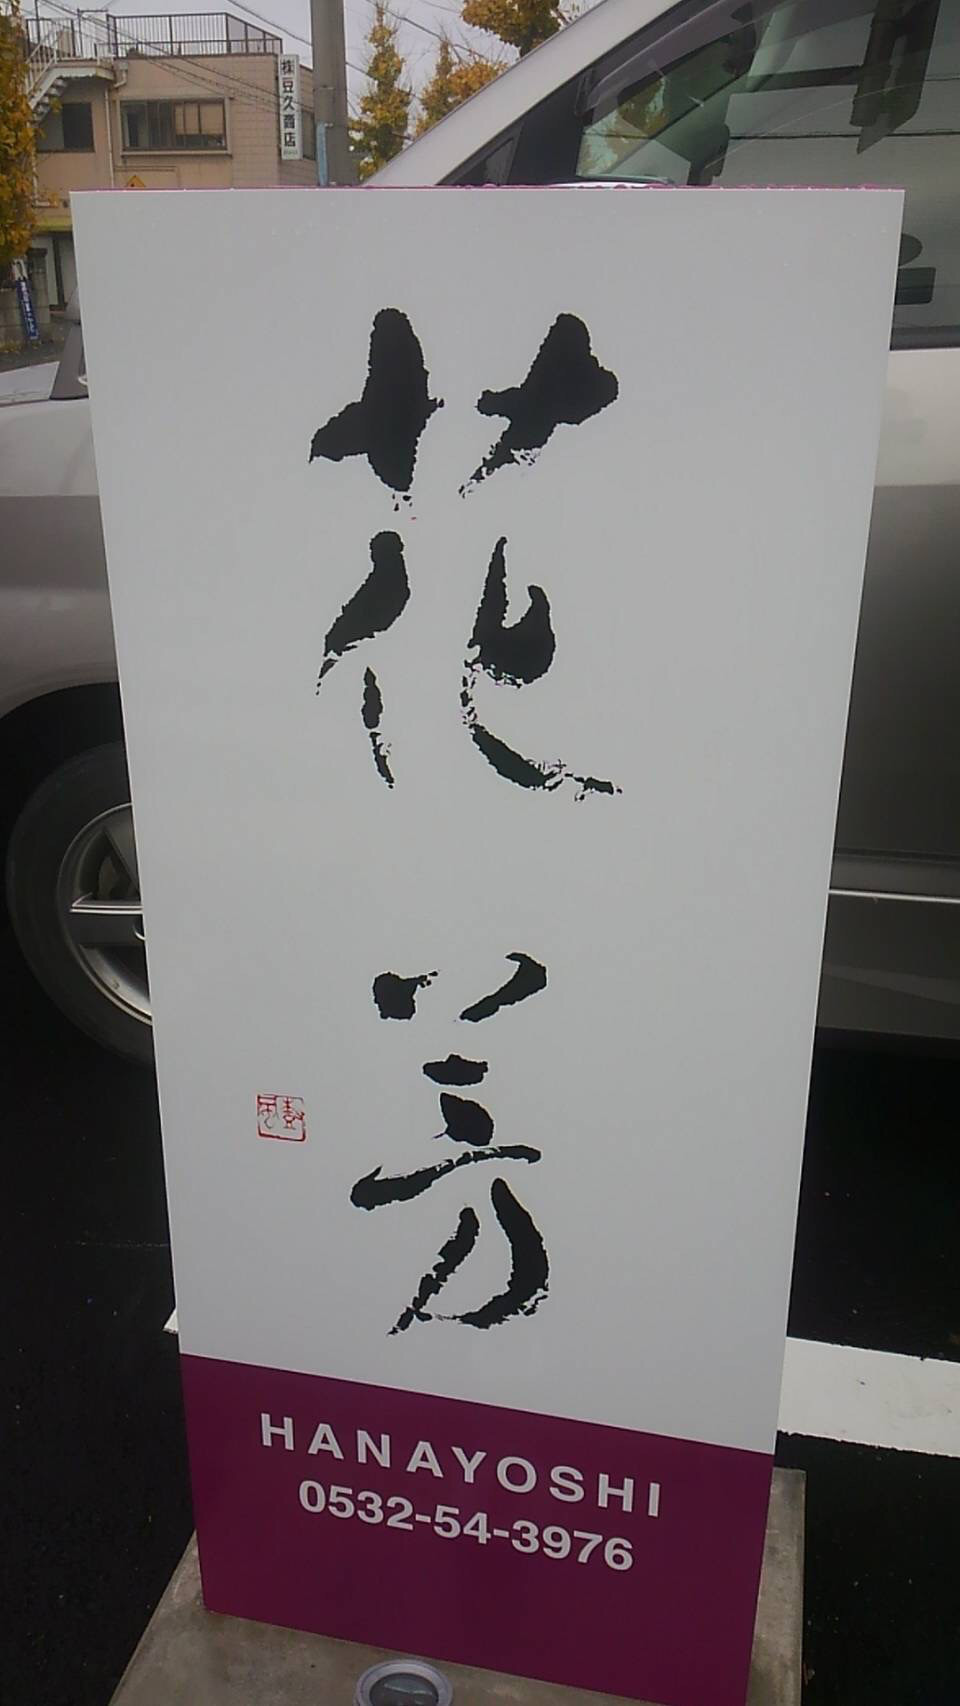 ㈱豆久商店
花芳
HANAYOSHI
0532-54-3976